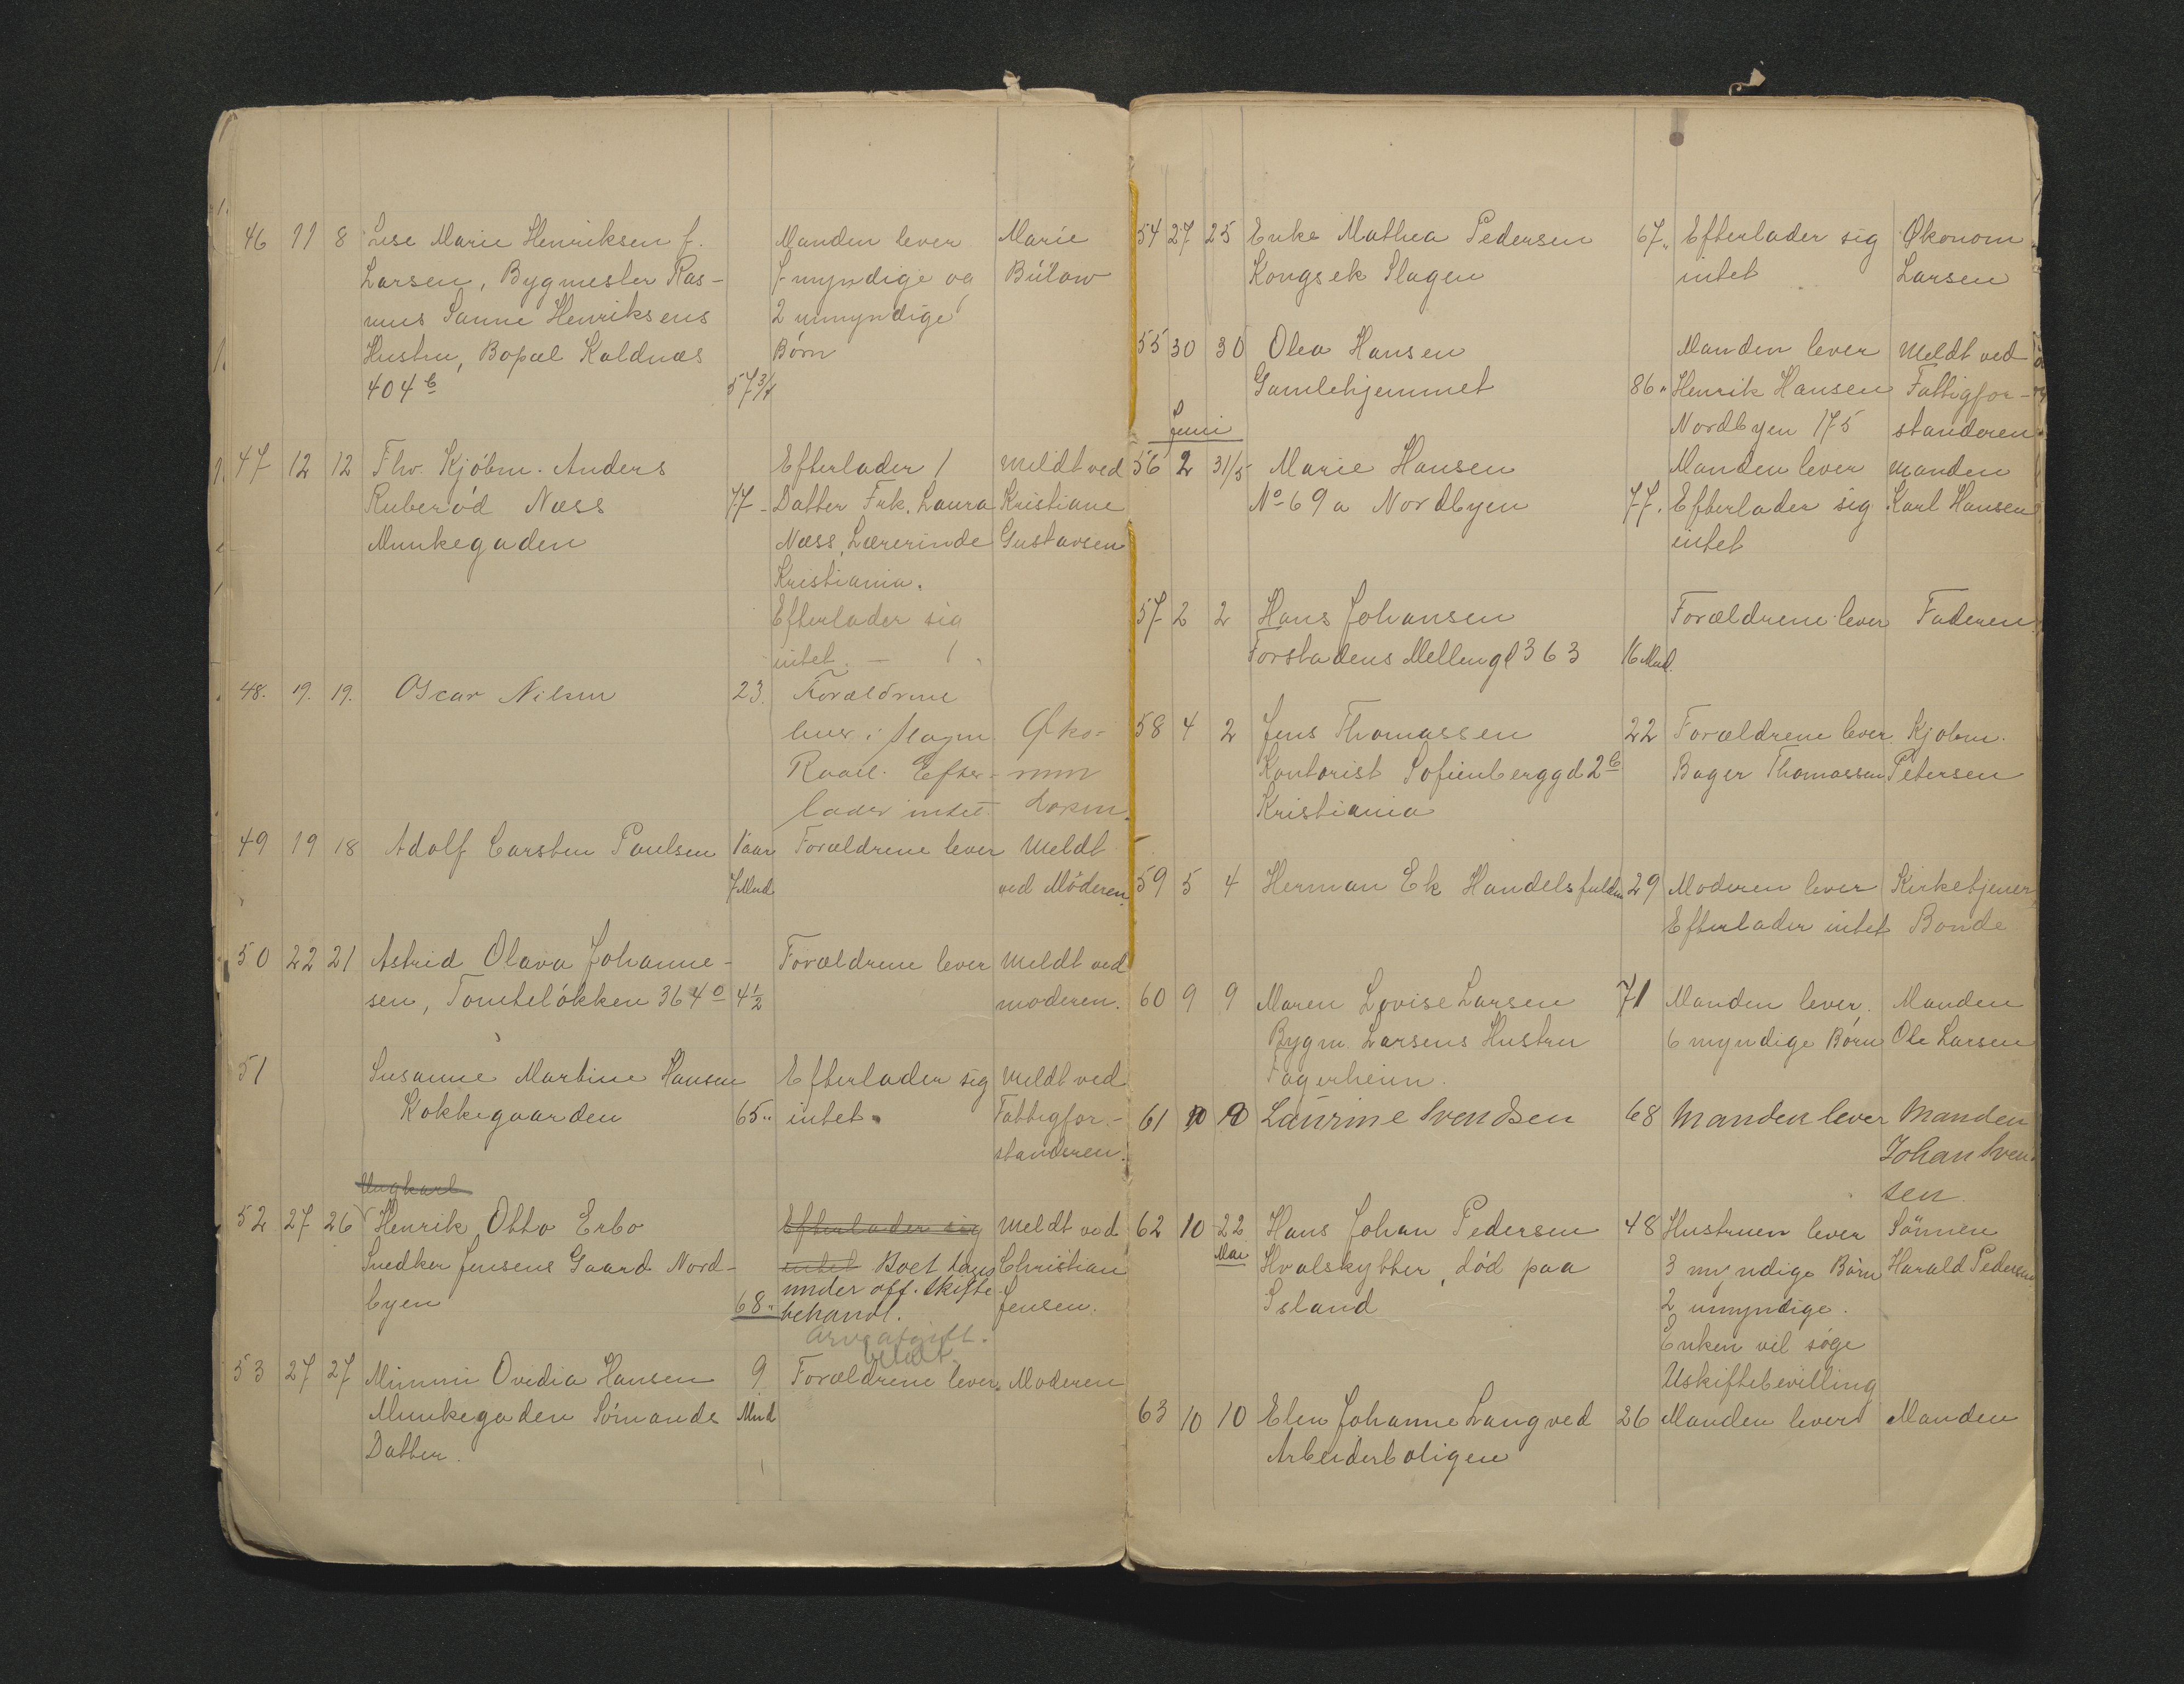 46 11 8 Lise Marie Henriksen f. Manden lever Marie
Larsen, Bygmester Ras- myndige og Bülow
mus Sanne Henriksens 2 umyndige
Hustru, Bopæl Kaldnæs Børn
404 b 57 3/4
47 12 12 Fhv. Kjøbm. Anders Efterlader 1 Meldt ved
Ruberød Næss 77 - Datter Frk. Laura Kristiane
Munkegaden Næss, Lærerinde Gustavsen
Kristiania.
Efterlader sig
intet. -
48. 19. 19. Oscar Nilsen 23. Forældrene
lever i Slagen Øko-
Raael. Efter- nom
lader intet. Larsen.
49 19 18 Adolf Carsten Paulsen 1 aar Forældrene lever Meldt
7 Mnd ved Möderen.
50 22 21 Astrid Olava Johanne- Forældrene lever Meldt ved
sen, Tomteløkken 364 o 4 1/2 moderen.
51 Susanne Martine Hansen Efterlader sig Meldt ved
Kokkegaarden 65 " intet. Fattigfor-
standeren.
Ungkarl
52 27 26 Henrik Otto Erbo Efterlader sig Meldt ved
Snedker Jensens Gaard Nord- intet Boet tages Christian
byen 68 " under off. skifte- Jensen.
behandl.
Arveafgift.
betalt
53 27 27 Mimmi Ovidia Hansen 9 Forældrene lever. Moderen
Munkegaden Sömands Mnd
Datter.
54 27 25 Enke Mathea Pedersen 67 " Efterlader sig Økonom
Kongsek Slagen intet Larsen
55 30 30 Olea Hansen Manden lever Meldt ved
Gamlehjemmet 86 " Henrik Hansen Fattigfor-
Nordbyen 175 standeren
Juni
56 2 31/5 Marie Hansen Manden lever Manden
No 69 a Nordbyen 77. Efterlader sig Karl Hansen
intet
57 2 2 Hans Johansen Forældrene lever Faderen
Forstadens Mellemgd 363 16 Mnd.
58 4 2 Jens Thomassen 22 Forældrene lever. Kjøbm.
Kontorist Sofienberggd 2 b Bager Thomassen Petersen
Kristiania
59 5 4 Herman Ek Handelsfuldm 29 Moderen lever Kirketjener
Efterlader intet Bonde
60 9 9 Maren Lovise Larsen 71 Manden lever, Manden
Bygm. Larsens Hustru 6 myndige Børn Ole Larsen
Fagerheim.
61 10 10 Laurine Svendsen 68 Manden lever Manden
Johan Svend
sen.
62 10 22 Hans Johan Pedersen 48 Hustruen lever Sönnen
Mai Hvalskytter, død paa 3 myndige Børn Harald Pedersen
Island 2 umyndige.
Enken vil søge
Uskiftebevilling
63 10 10 Elen Johanne Langved 26 Manden lever Manden
Arbeiderboligen